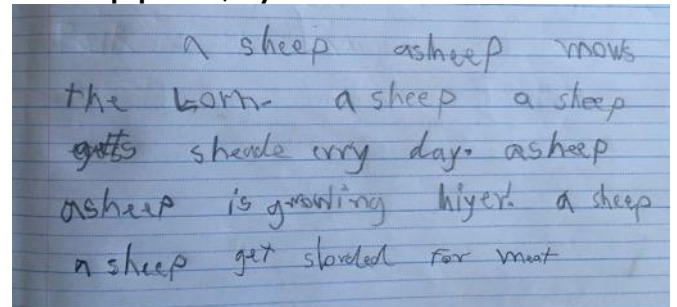 a sheep asheep mows
the korn- a sheep a sheep
getts sheade erry day. asheep
asheep is growling hiyer. a sheep
a sheep get sloreled for meat